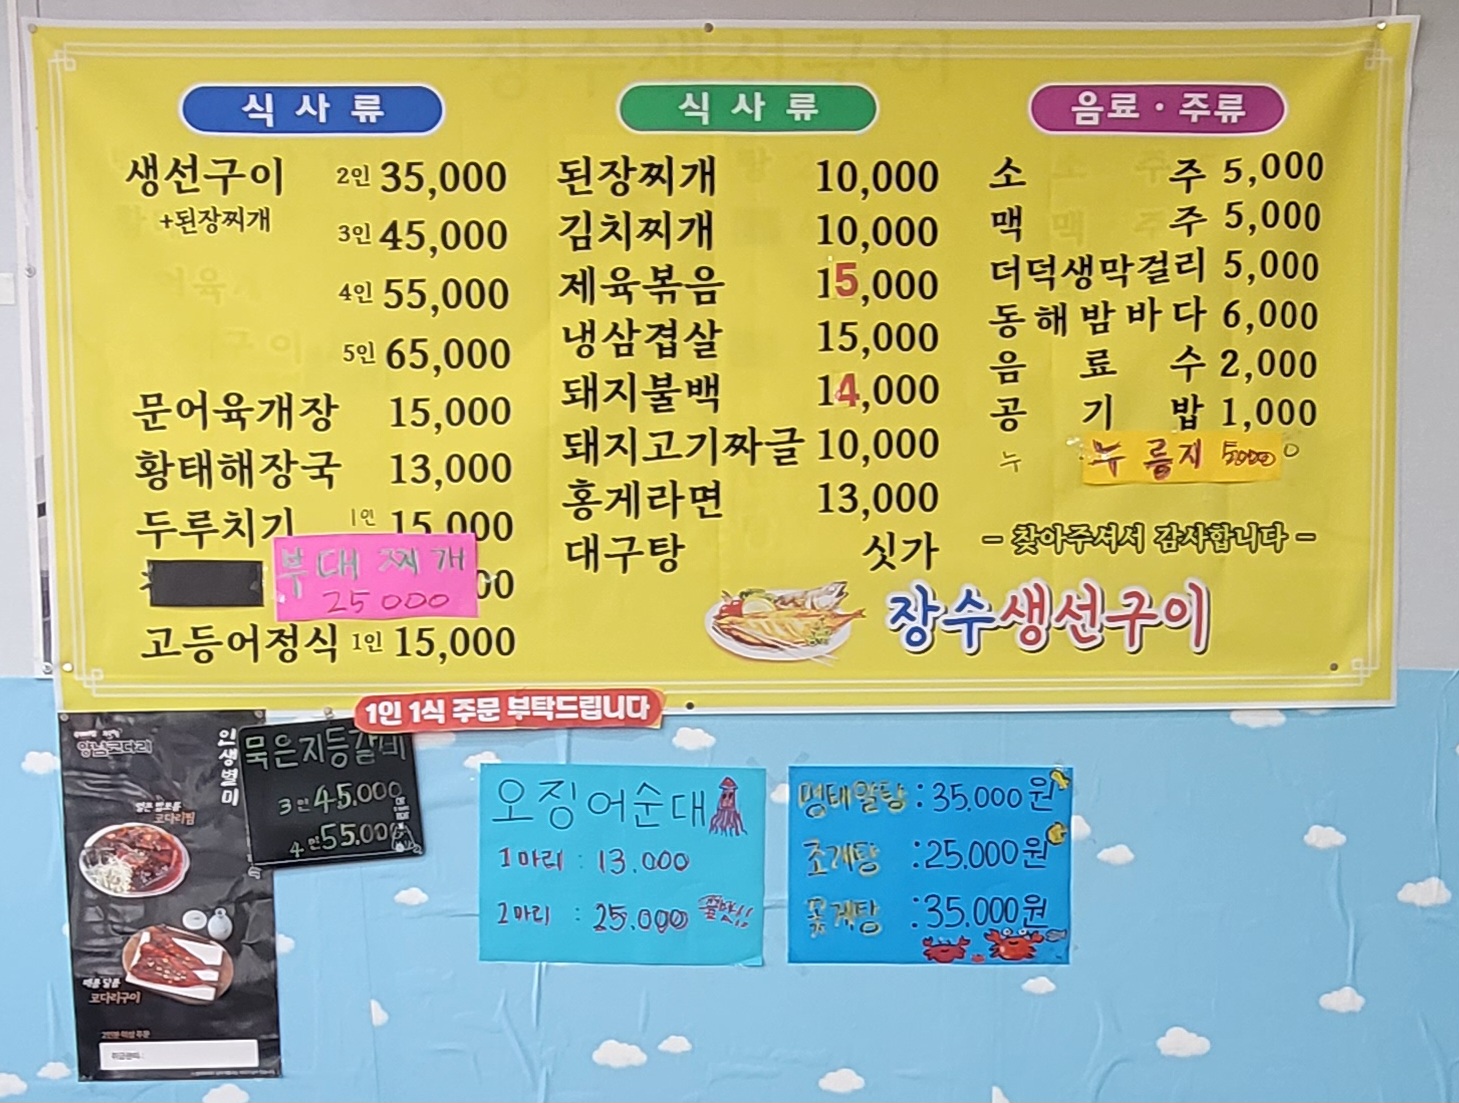 식사류
생선구이 2인 35,000
+된장찌개
3인 45,000
4인 55,000
5인 65,000
문어육개장 15,000
황태해장국 13,000
두루치기 1인 15,000
부대찌개
25000
고등어정식 1인 15,000
식사류
된장찌개 10,000
김치찌개 10,000
제육볶음 15,000
냉삼겹살 15,000
돼지불백 14,000
돼지고기짜글 10,000
홍게라면 13,000
대구탕 싯가
음료·주류
소주 5,000
맥주 5,000
더덕생막걸리 5,000
동해밤바다 6,000
음료수 2,000
공기밥 1,000
누릉지 5,000
- 찾아주셔서 감사합니다 -
장수생선구이
1인 1식 주문 부탁드립니다
양남코다리
인생별미
코다리찜
매콤 달콤
코다리구이
2인분 이상 주문
묵은지등갈비
3인 45,000
4인 55,000
오징어순대
1마리 : 13.000
2마리 : 25.000 꿀맛!!
명태알탕 : 35.000원
조개탕 : 25.000원
꽃게탕 : 35.000원